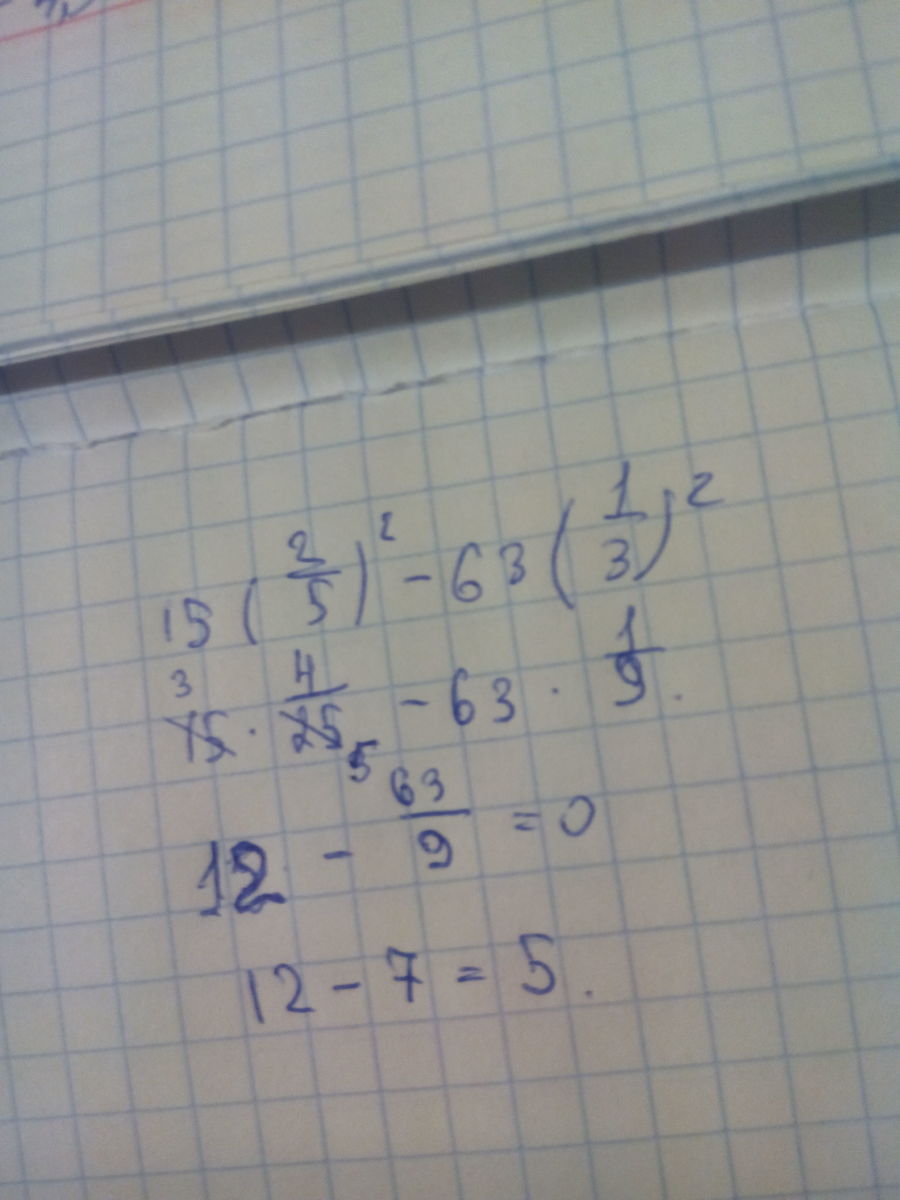 15 (2/5)² - 63 (1/3)²
3
15 · 4/25 - 63 · 1/9.
5
12 - 63/9 = 0
12 - 7 = 5.